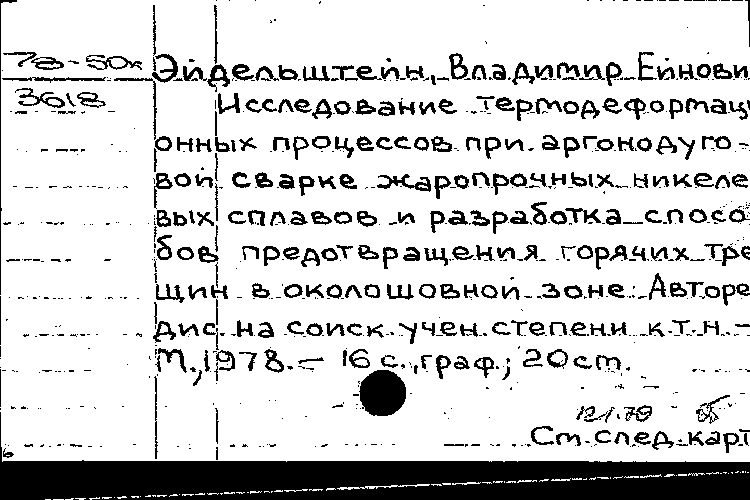 78-50к Эйдельштейн, Владимир Ейнови
3618 Исследование термодеформаци
онных процессов при аргонодуго-
вой сварке жаропрочных никеле
вых сплавов и разработка спосо
бов предотвращения горячих тре
щин в околошовной зоне: Авторе
дис. на соиск. учен. степени к.т.н. -
М., 1978. - 16 с., граф.; 20 cm.
См. след. карт
6